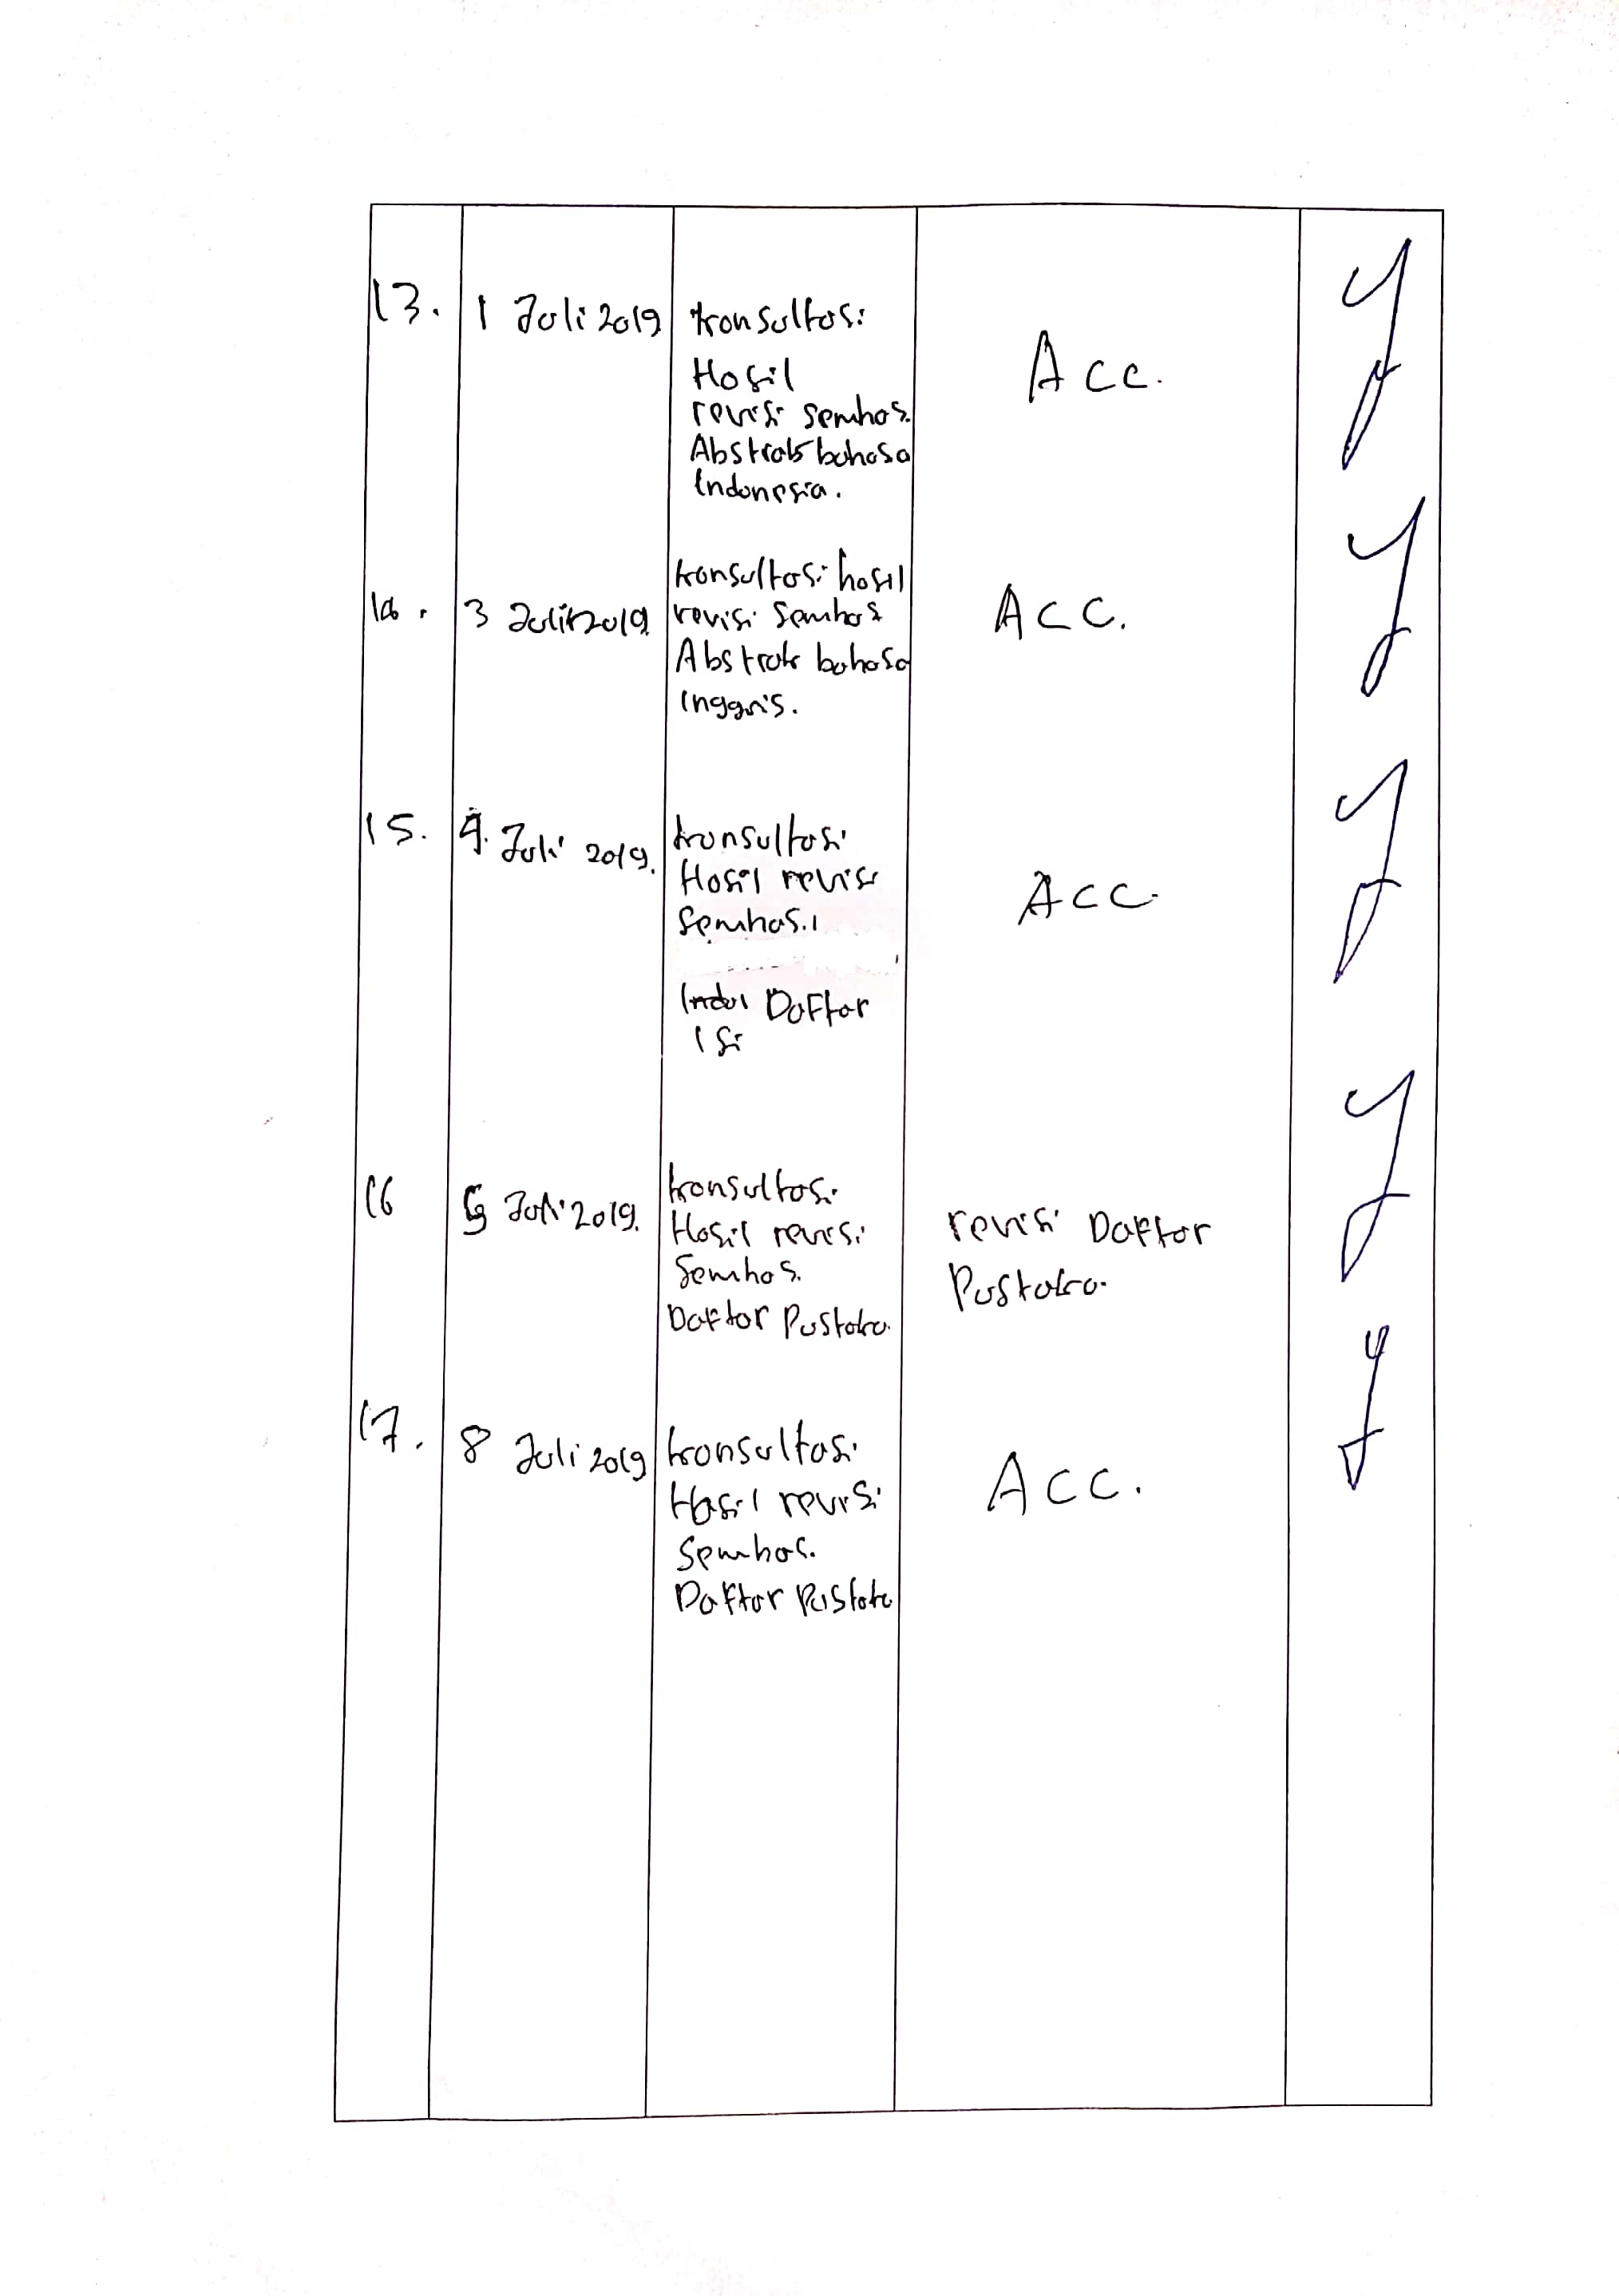 13.
1 Juli 2019
Konsultasi
Hasil
revisi semhas.
Abstrak bahasa
Indonesia.
Acc.
14.
3 Juli 2019
Konsultasi hasil
revisi Semhas
Abstrak bahasa
Inggris.
Acc.
15.
4. Juli 2019.
Konsultasi
Hasil revisi
Semhas.
Daftar
Isi
Acc.
16
5 Juli 2019.
Konsultasi
Hasil revisi
Semhas.
Daftar Pustaka.
revisi Daftar
Pustaka.
17.
8 Juli 2019
Konsultasi
Hasil revisi
Semhas.
Daftar Pustaka
Acc.